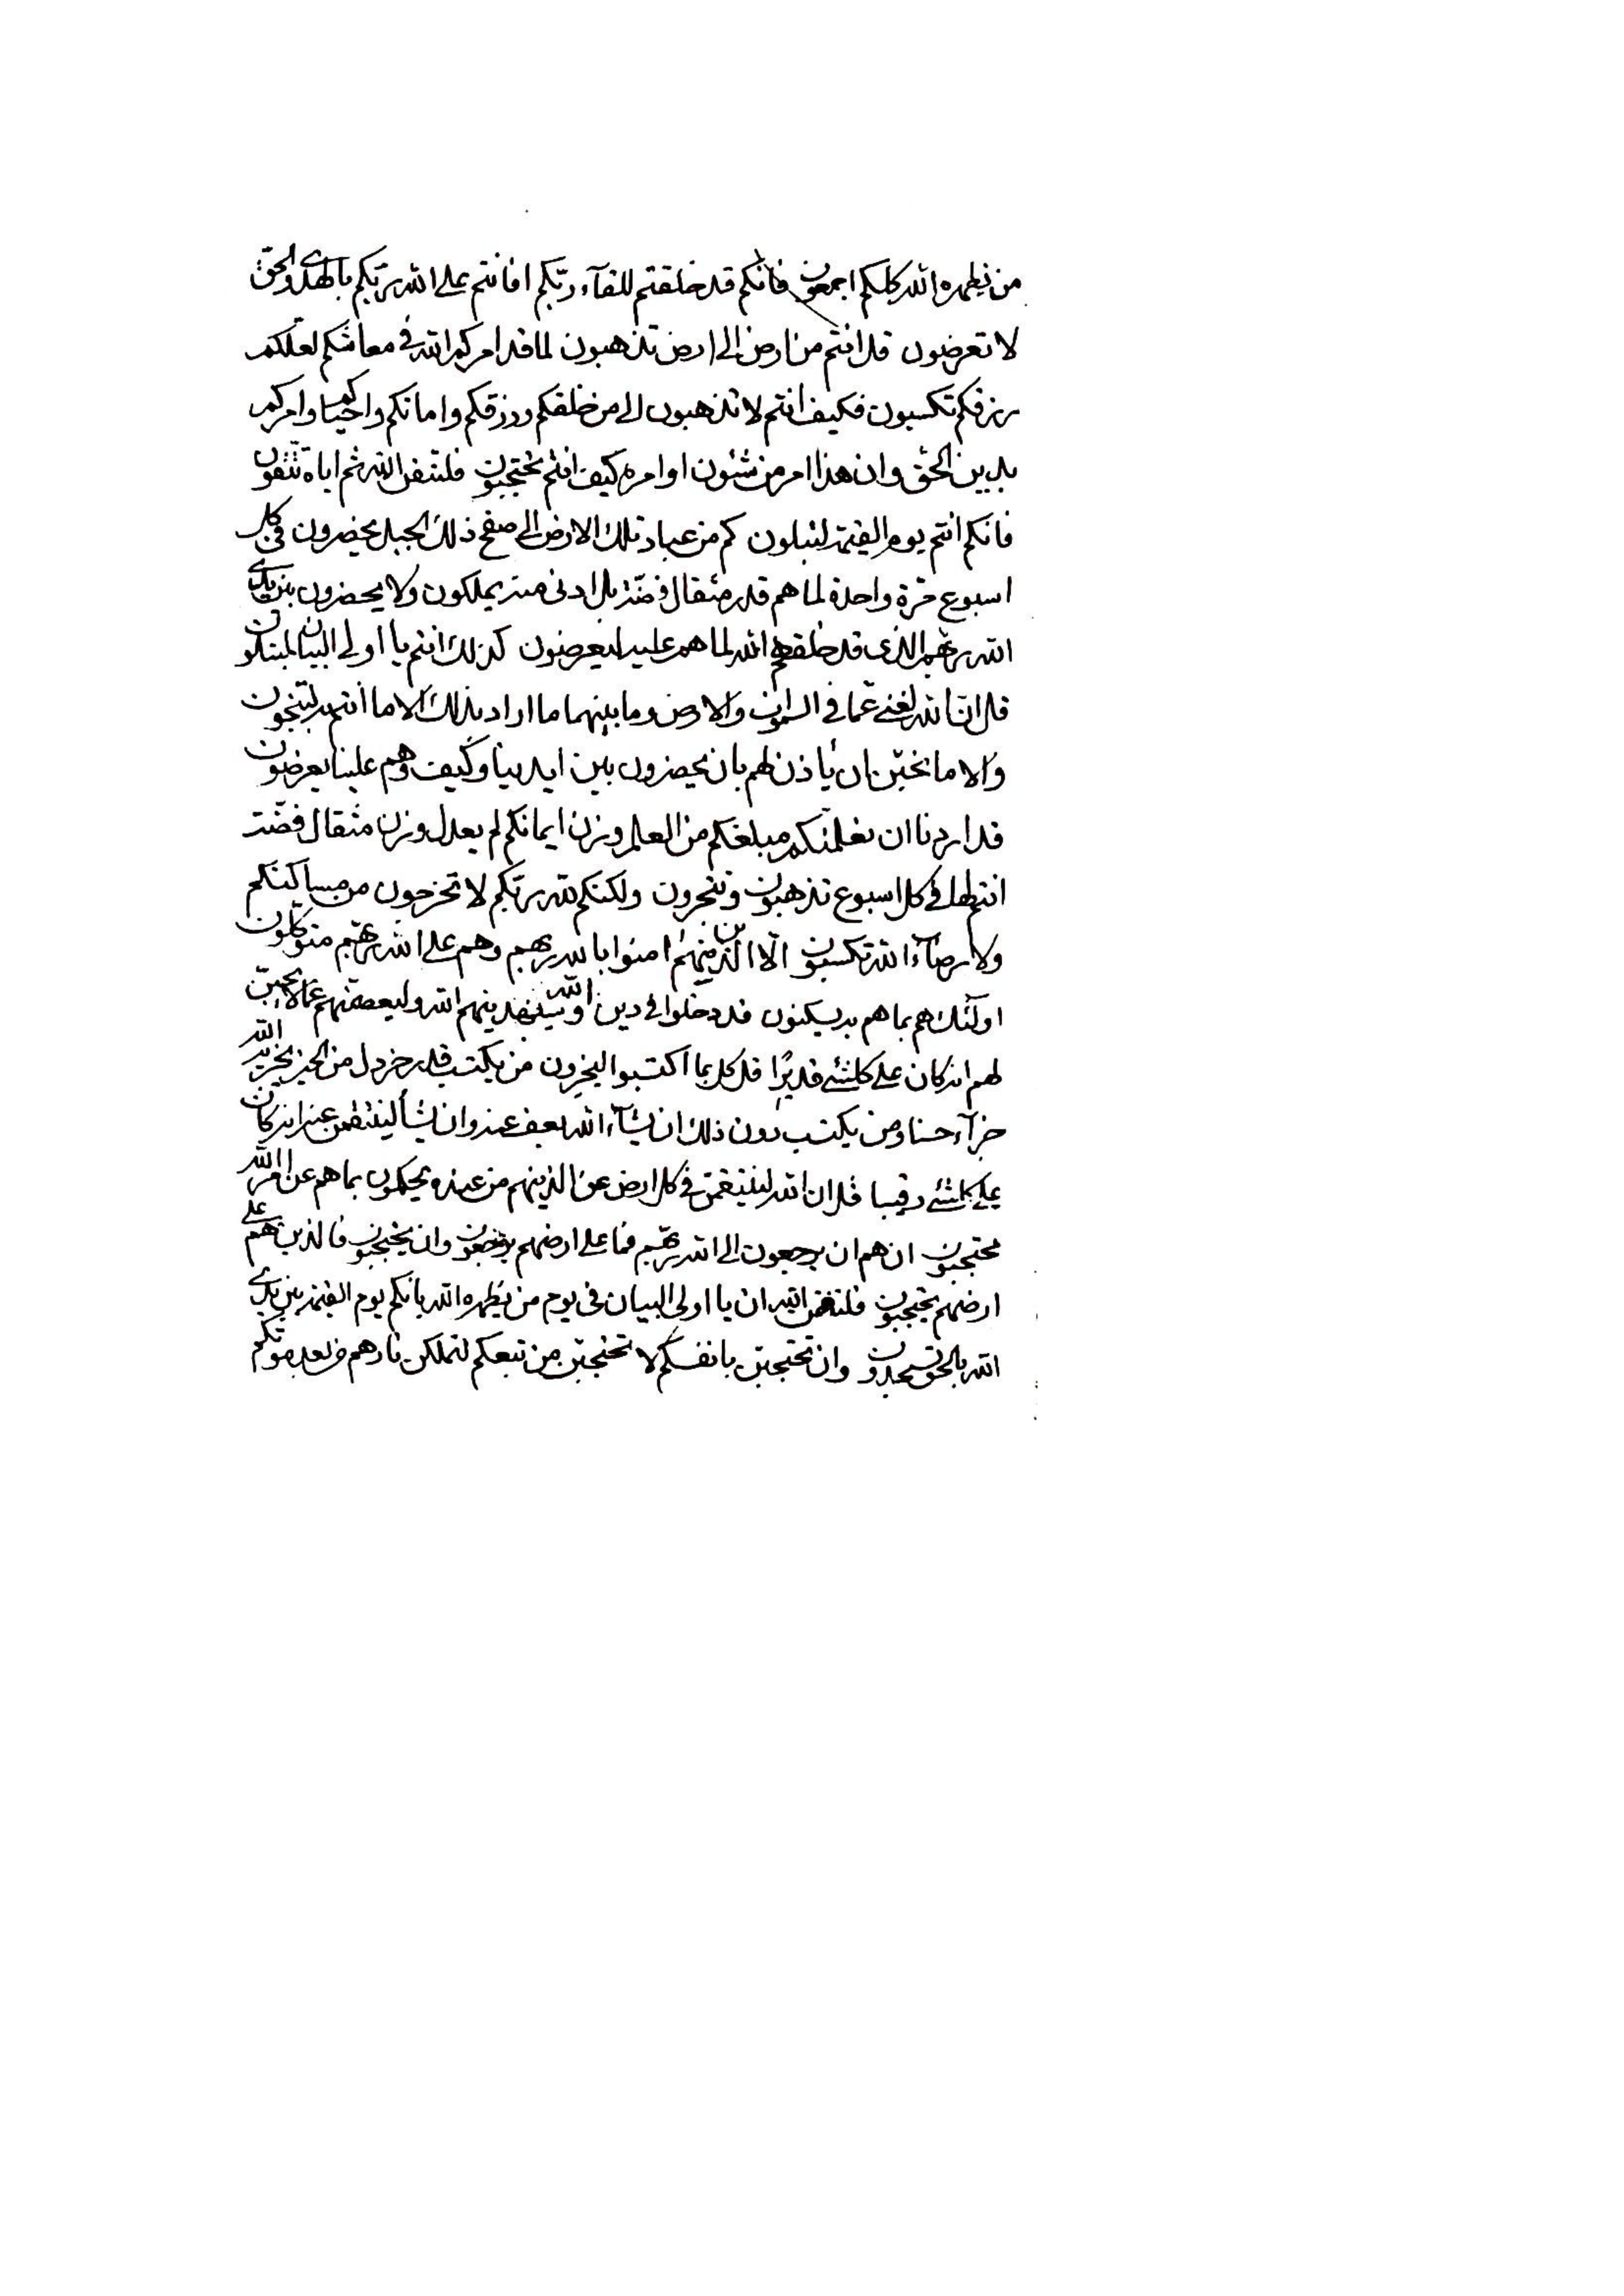 من يظهره الله كلكم اجمعون فانكم قد خلقتم للقآء ربكم افانتم على الله ربكم بالهدى والحق
لا تعرضون قل انتم من ارض الى ارض تذهبون لما قد امركم الله فى معاشكم لعلكم
رزقكم تكسبون فكيف انتم لا تذهبون الى من خلقكم ورزقكم واماتكم واحياكم وامركم
بدين الحق وان هذا امر من شئون اوامره كيف انتم تحتجبون فلتتقن الله ثم اياه تتقون
فانكم انتم يوم القيمة لتبلون كم من عباد تلك الارض الى صفح ذلك الجبل يحضرون فى كل
اسبوع مرة واحدة لما هم قدر مثقال فضة بل ادنى منه يملكون ولا يحضرون بين يدى
الله ربهم الذى قد خلقهم الله لما هم عليه ليعرضون كذلك انتم يا اولى البيان لمبتلون
قل ان الله لغنى عما فى السموات والارض وما بينهما ما اراد بذلك الا ما انتم به لتنجون
والا ما نحبن ان ياذن لهم بان يحضرون بين ايدينا وكيف وهم علينا يعرضون
قد اردنا ان نعلمنكم مبلغكم من العلم وزن ايمانكم لم يعدل وزن مثقال فضة
انتم لها فى كل اسبوع تذهبون وتتجرون ولكنكم لله ربكم لا تخرجون من مساكنكم
ولا رضآء الله تكسبون الا الذينهم امنوا بالله ربهم وهم على الله ربهم متوكلون
اولئك هم بما هم به يسكنون قد دخلوا فى دين الله وليعصمنهم عما لا يحبن
لهم انه كان على كلشئ قديرًا قل كل بما اكتسبوا ليجزون من يكتسب قدر خردل من الخير يجزيه الله
جزآء حسنا ومن يكتسب دون ذلك ان يشآء الله يعف عنه وان يشأ لينتقمن عنه انه كان
على كلشئ رقيبا قل ان الله لينتقمن فى كل ارض عن الذينهم من عنده يحكمون بما هم عن امر الله
محتجبون ان هم ان يرجعون الى الله ربهم فما على ارضهم يرجعون وان يحتجبون فالذينهم على
ارضهم يحتجبون فلتتقن الله ان يا اولى البيان فى يوم من يظهره الله بانكم يوم القيمة بين يدى
الله بالحق تسجدون وان تحتجبن بانفسكم لا تحتجبن من تبعكم لتملكن نارهم من بعد موتكم